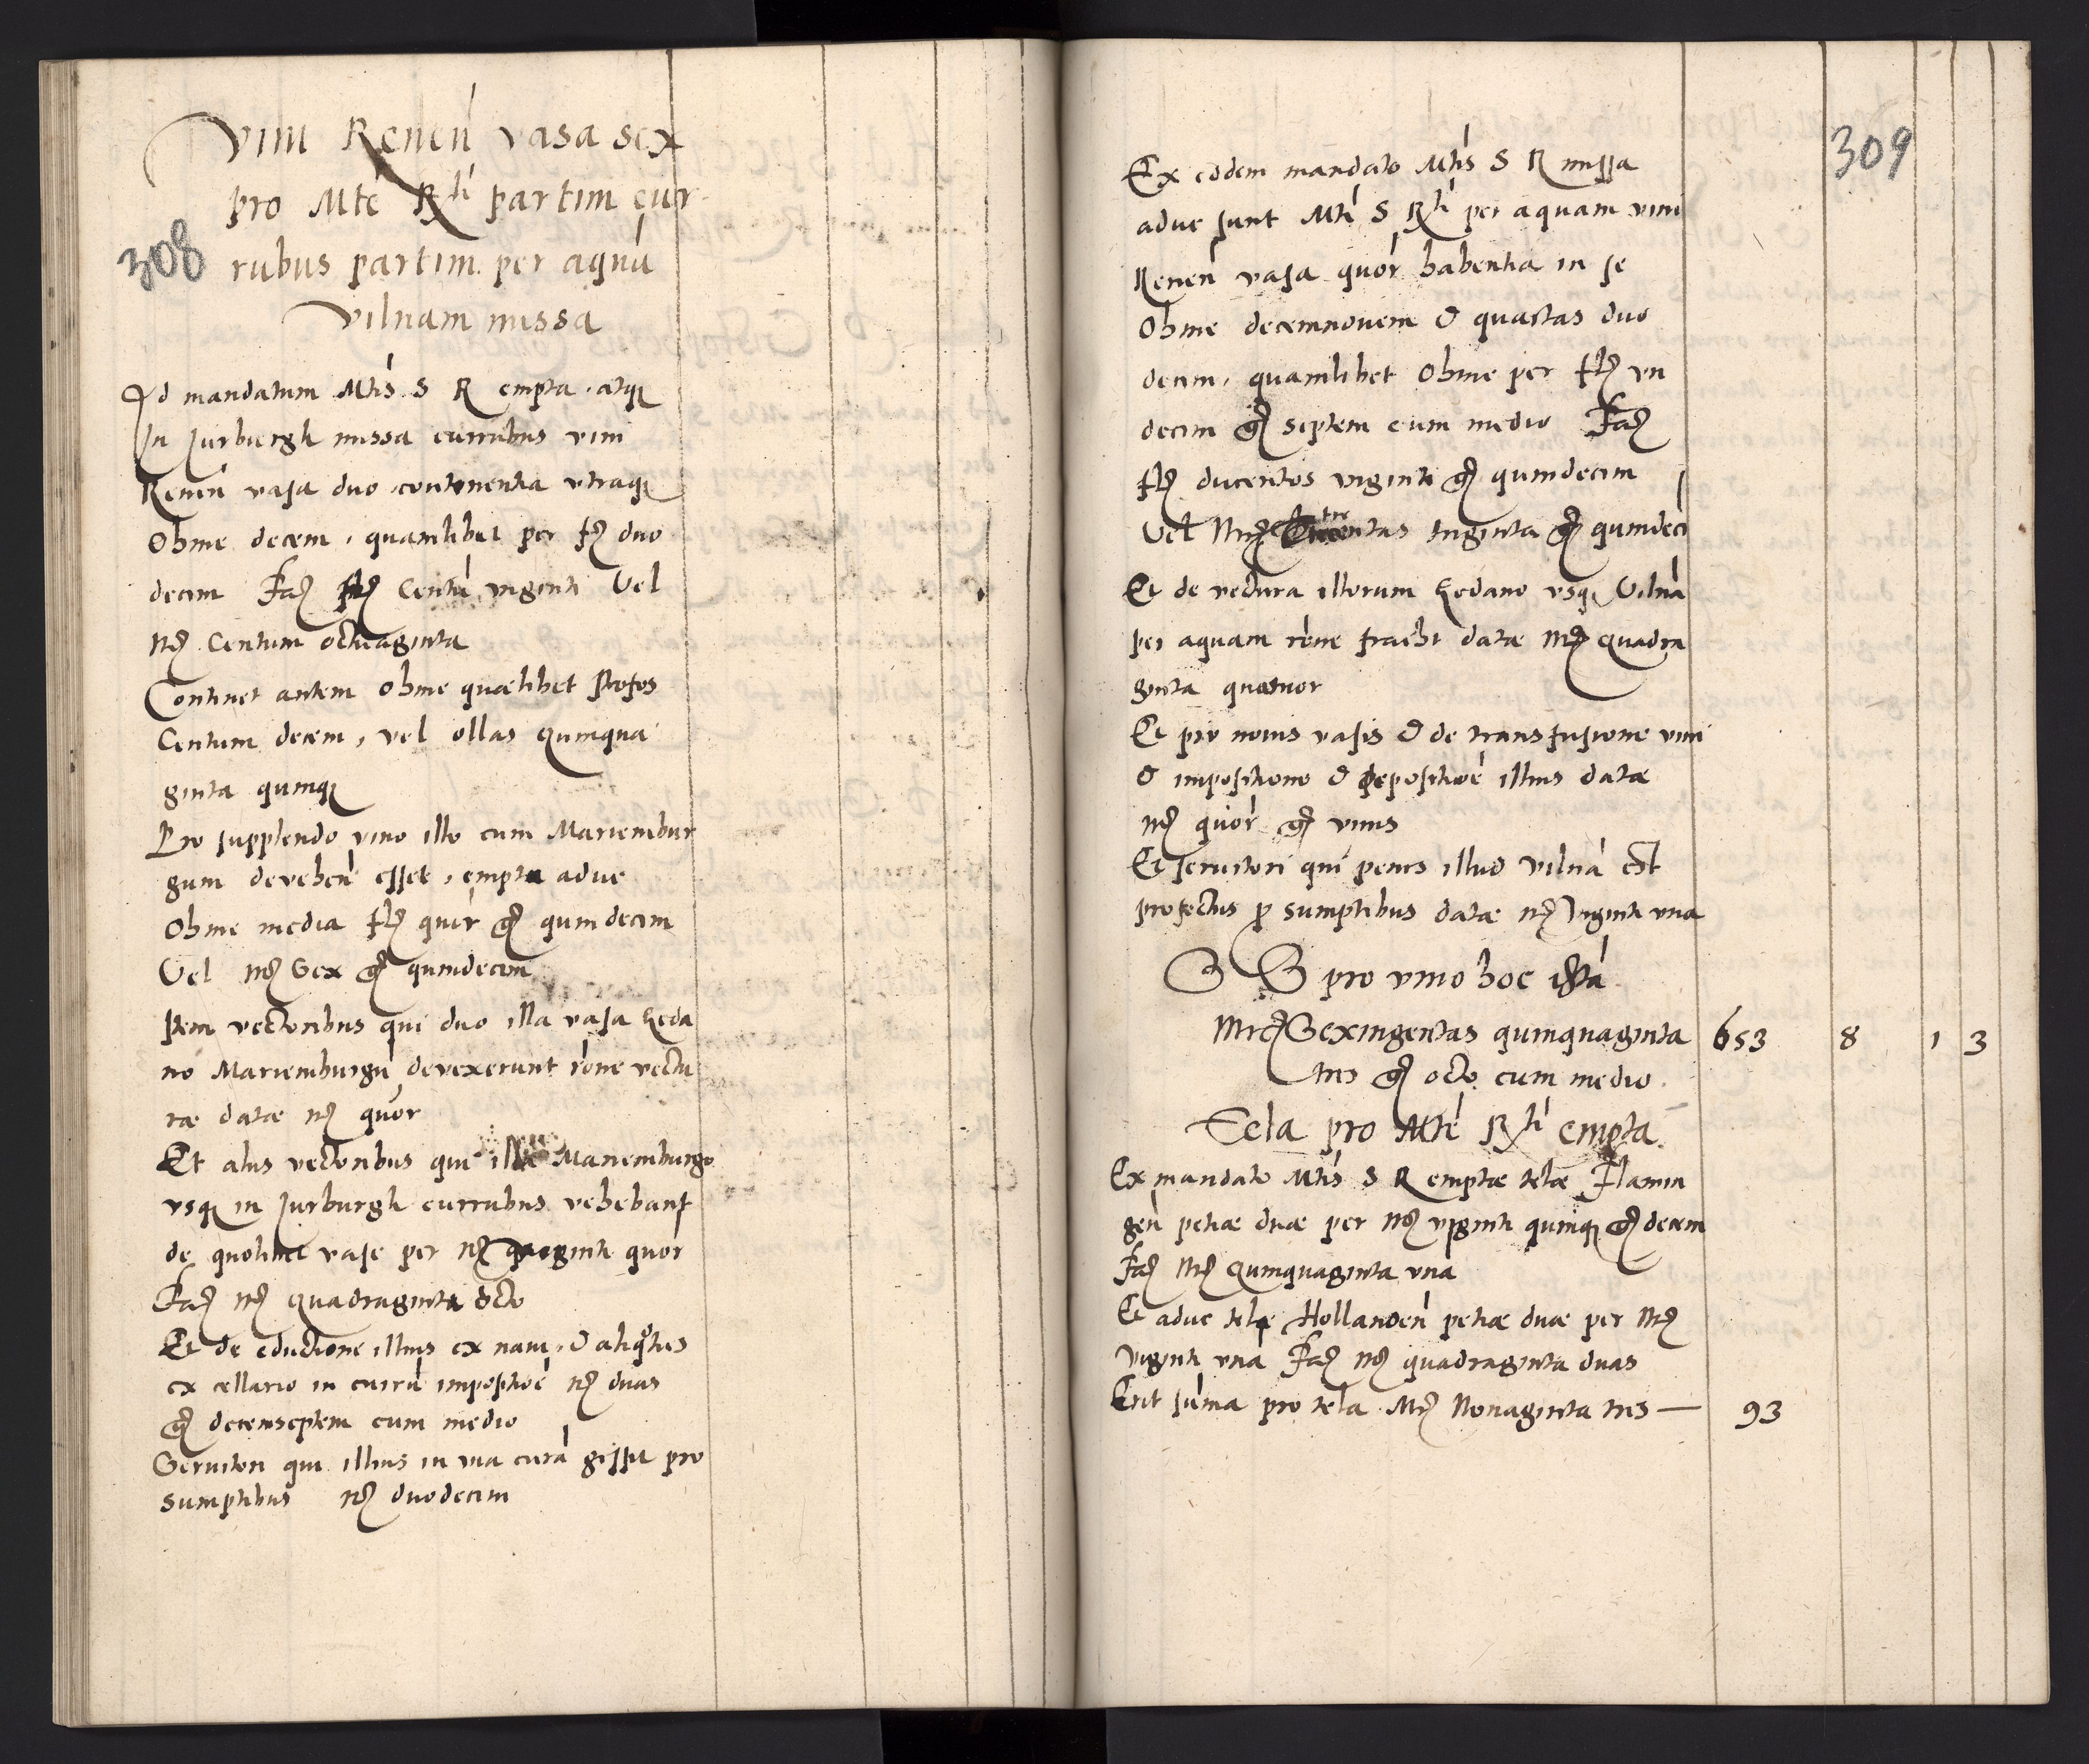 Vini Renen̄ vasa sex
pro Mte Rti partim cur
308
rubus partim per aquā
Vilnam missa
Ad mandatum Mtis S R empta atqȝ
In Jurburgh missa curribus vini
Renen̄ vasa duo continentia vtraqȝ
Ohme decem, quamlibet per fl duo
decim Fač fl Centū viginti Vel
mč Centum octuaginta
Continet autem ohme quælibet stofos
Centum decem, vel ollas quinqua
ginta quinqȝ
Pro supplendo vino illo cum Mariembur
gum devehen̄ esset, empta aduc
Ohme media fl quīr gč quindecim
Vel mč Sex gč quindecim
Item vectoribus qui duo illa vasa Geda
no Mariemburgū devexerunt rōne vectu
ræ datæ mč quōr
Et aliis vectoribus qui illa Mariemburgo
vsqȝ in Jurburgh curribus vehebant
de quolibet vase per mč viginti quōr
Fač mč quadraginta octo
Et de eductione illius ex naui, & aliqotius
ex cellario in currū impositiōe mč duas
gč decemseptem cum medio
Seruitori qui illius in via curā gessit pro
sumptibus mč duodecim
309
Ex eodem mandato Mtis S R missa
aduc sunt Mti S Rti per aquam vini
Renen̄ vasa quōr habentia in se
Ohme decemnouem & quartas duo
decim, quamlibet Ohme per fl vn
decim gč septem cum medio Fač
fl ducentos viginti gč quindecim
Vel Mrč tre centas triginta gč quindecī
Et de vectura illorum Gedano vsqȝ Vilnā
per aquam rōne fracht datæ mč quadra
ginta quatuor
Et pro nouis vasis & de transfusione vini
& impositione & depositiōe illius datæ
mč quōr gč vnus
Et seruitori qui penes illud Vilnā est
profectus p sumptibus datæ mč viginti vna
S S pro vino hoc istā
Mrč Sexingentas quinquaginta 653 8 1 3
tres gč octo cum medio
Tela pro Mte Rti empta
Ex mandato Mtis S R emptæ telæ Flamin
gen̄ petiæ duæ per mč viginti quinqȝ gč decem
Fač mč quinquaginta vna
Et aduc telæ Hollanden̄ petiæ duæ per mč
viginti vnā Fač mč quadraginta duas
Erit sūma pro tela Mč Nonaginta tres — 93